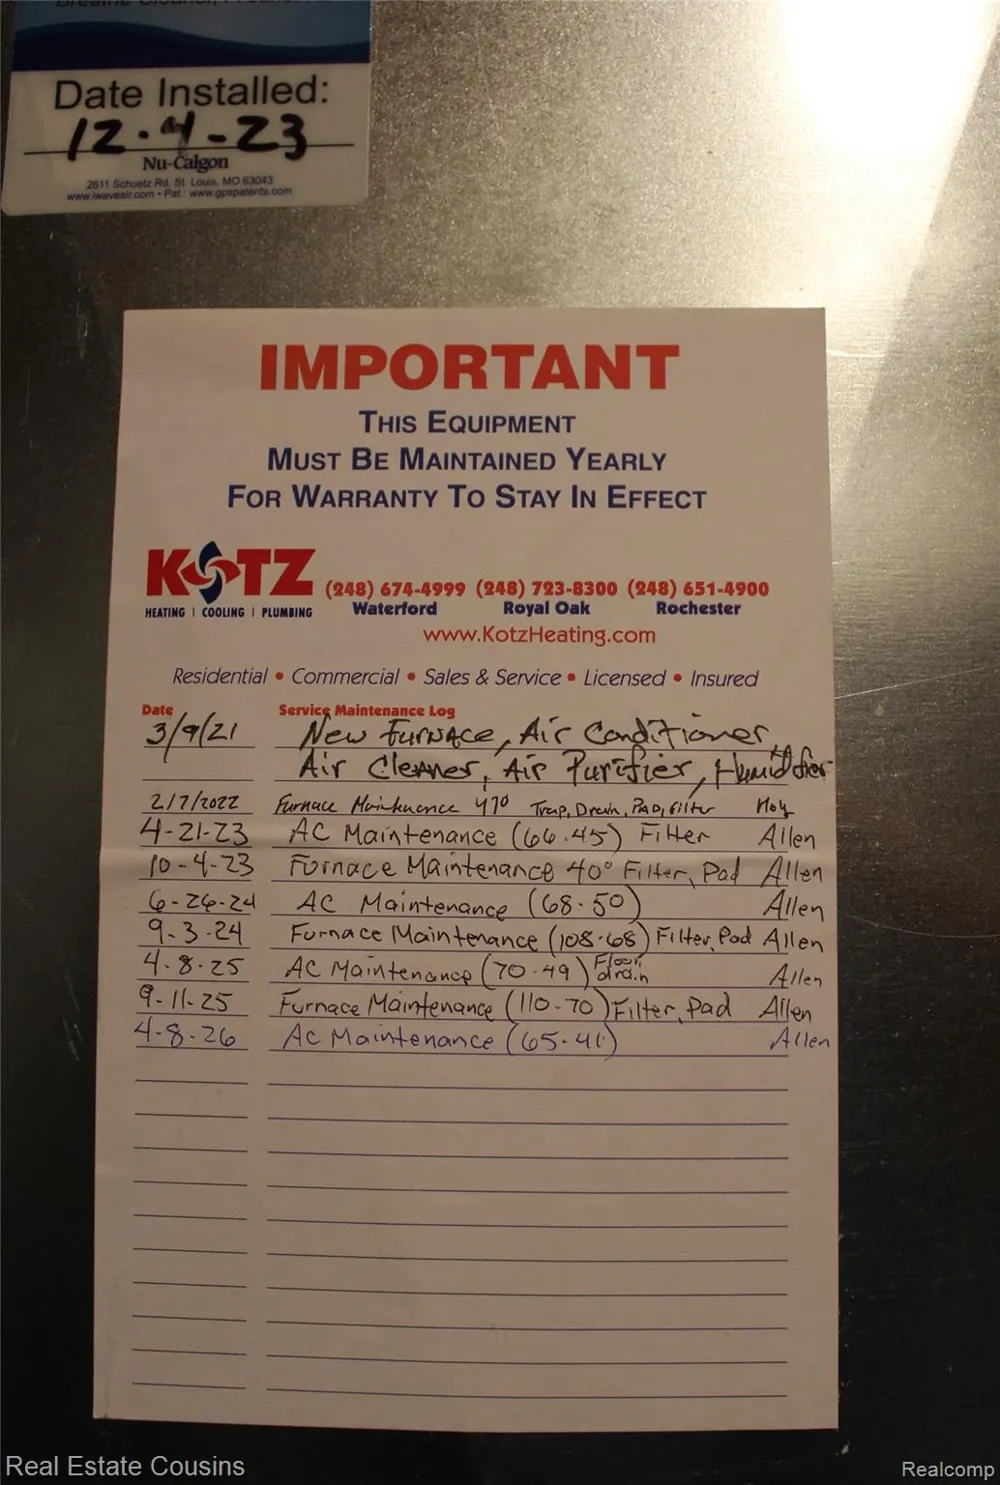 Date Installed:
12-4-23
Nu-Calgon
2611 Schuetz Rd. St. Louis, MO 63043
www.iwaveair.com • Pat.: www.gpspatents.com
IMPORTANT
THIS EQUIPMENT
MUST BE MAINTAINED YEARLY
FOR WARRANTY TO STAY IN EFFECT
KOTZ
HEATING | COOLING | PLUMBING
(248) 674-4999 (248) 723-8300 (248) 651-4900
Waterford Royal Oak Rochester
www.KotzHeating.com
Residential • Commercial • Sales & Service • Licensed • Insured
Date Service Maintenance Log
3/9/21 New Furnace, Air Conditioner
Air Cleaner, Air Purifier, Humidifier
2/7/2022 Furnace Maintenance 47° Trap, Drain, Pad, Filter
4-21-23 AC Maintenance (66-45) Filter Allen
10-4-23 Furnace Maintenance 40° Filter, Pad Allen
6-26-24 AC Maintenance (68-50) Allen
9-3-24 Furnace Maintenance (108-68) Filter, Pad Allen
4-8-25 AC Maintenance (70-49) Floor drain Allen
9-11-25 Furnace Maintenance (110-70) Filter, Pad Allen
4-8-26 AC Maintenance (65-41) Allen
Real Estate Cousins
Realcomp